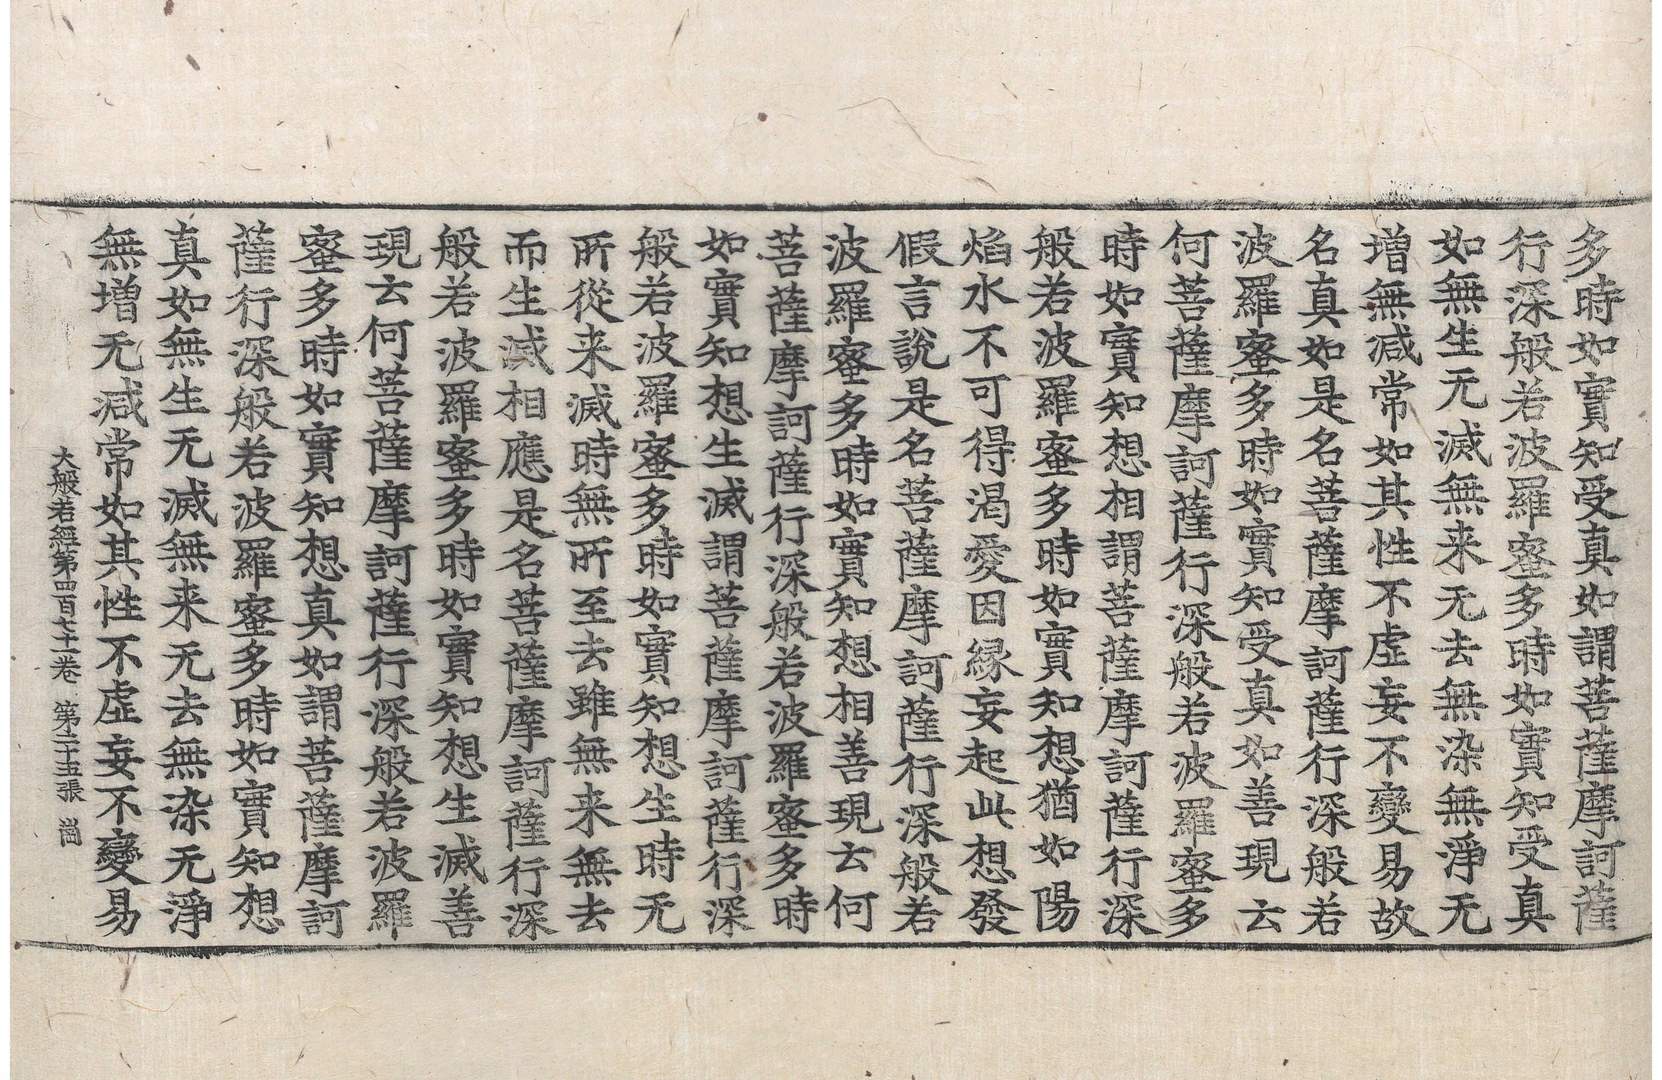 多時如實知受真如謂菩薩摩訶薩
行深般若波羅蜜多時如實知受真
如無生无滅無来无去無染無淨无
增無减常如其性不虛妄不變易故
名真如是名菩薩摩訶薩行深般若
波羅蜜多時如實知受真如善現云
何菩薩摩訶薩行深般若波羅蜜多
時如實知想相謂菩薩摩訶薩行深
般若波羅蜜多時如實知想猶如陽
焰水不可得渴愛因縁妄起此想發
假言說是名菩薩摩訶薩行深般若
波羅蜜多時如實知想相善現云何
菩薩摩訶薩行深般若波羅蜜多時
如實知想生滅謂菩薩摩訶薩行深
般若波羅蜜多時如實知想生時无
所從来滅時無所至去雖無来無去
而生滅相應是名菩薩摩訶薩行深
般若波羅蜜多時如實知想生滅善
現云何菩薩摩訶薩行深般若波羅
蜜多時如實知想真如謂菩薩摩訶
薩行深般若波羅蜜多時如實知想
真如無生无滅無来无去無染无淨
無增无减常如其性不虛妄不變易
大般若經第四百七十一卷 第二十五張